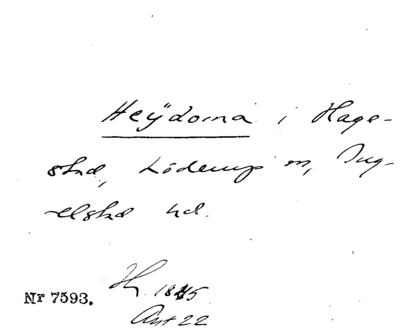 Heÿdorna i Hage-
stad, Löderup sn, Ing-
elstad hd.
Nr 7593.
Ant 22